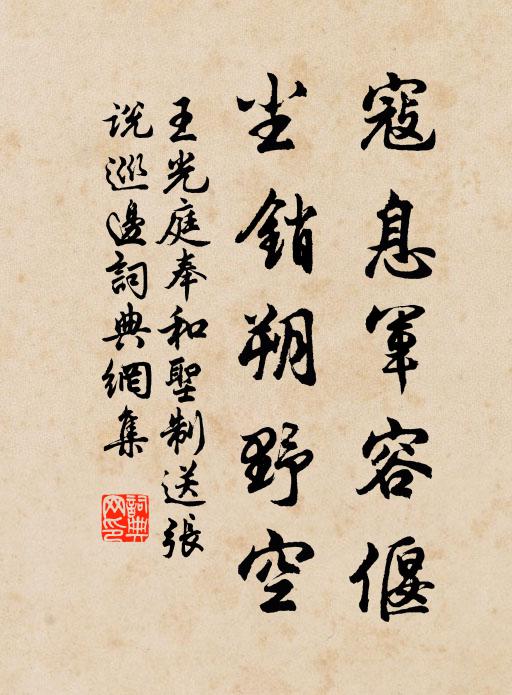 寇息軍容偃
尘銷朔野空
王光庭奉和聖制送張
说巡邊詞典網集
詞典
网印